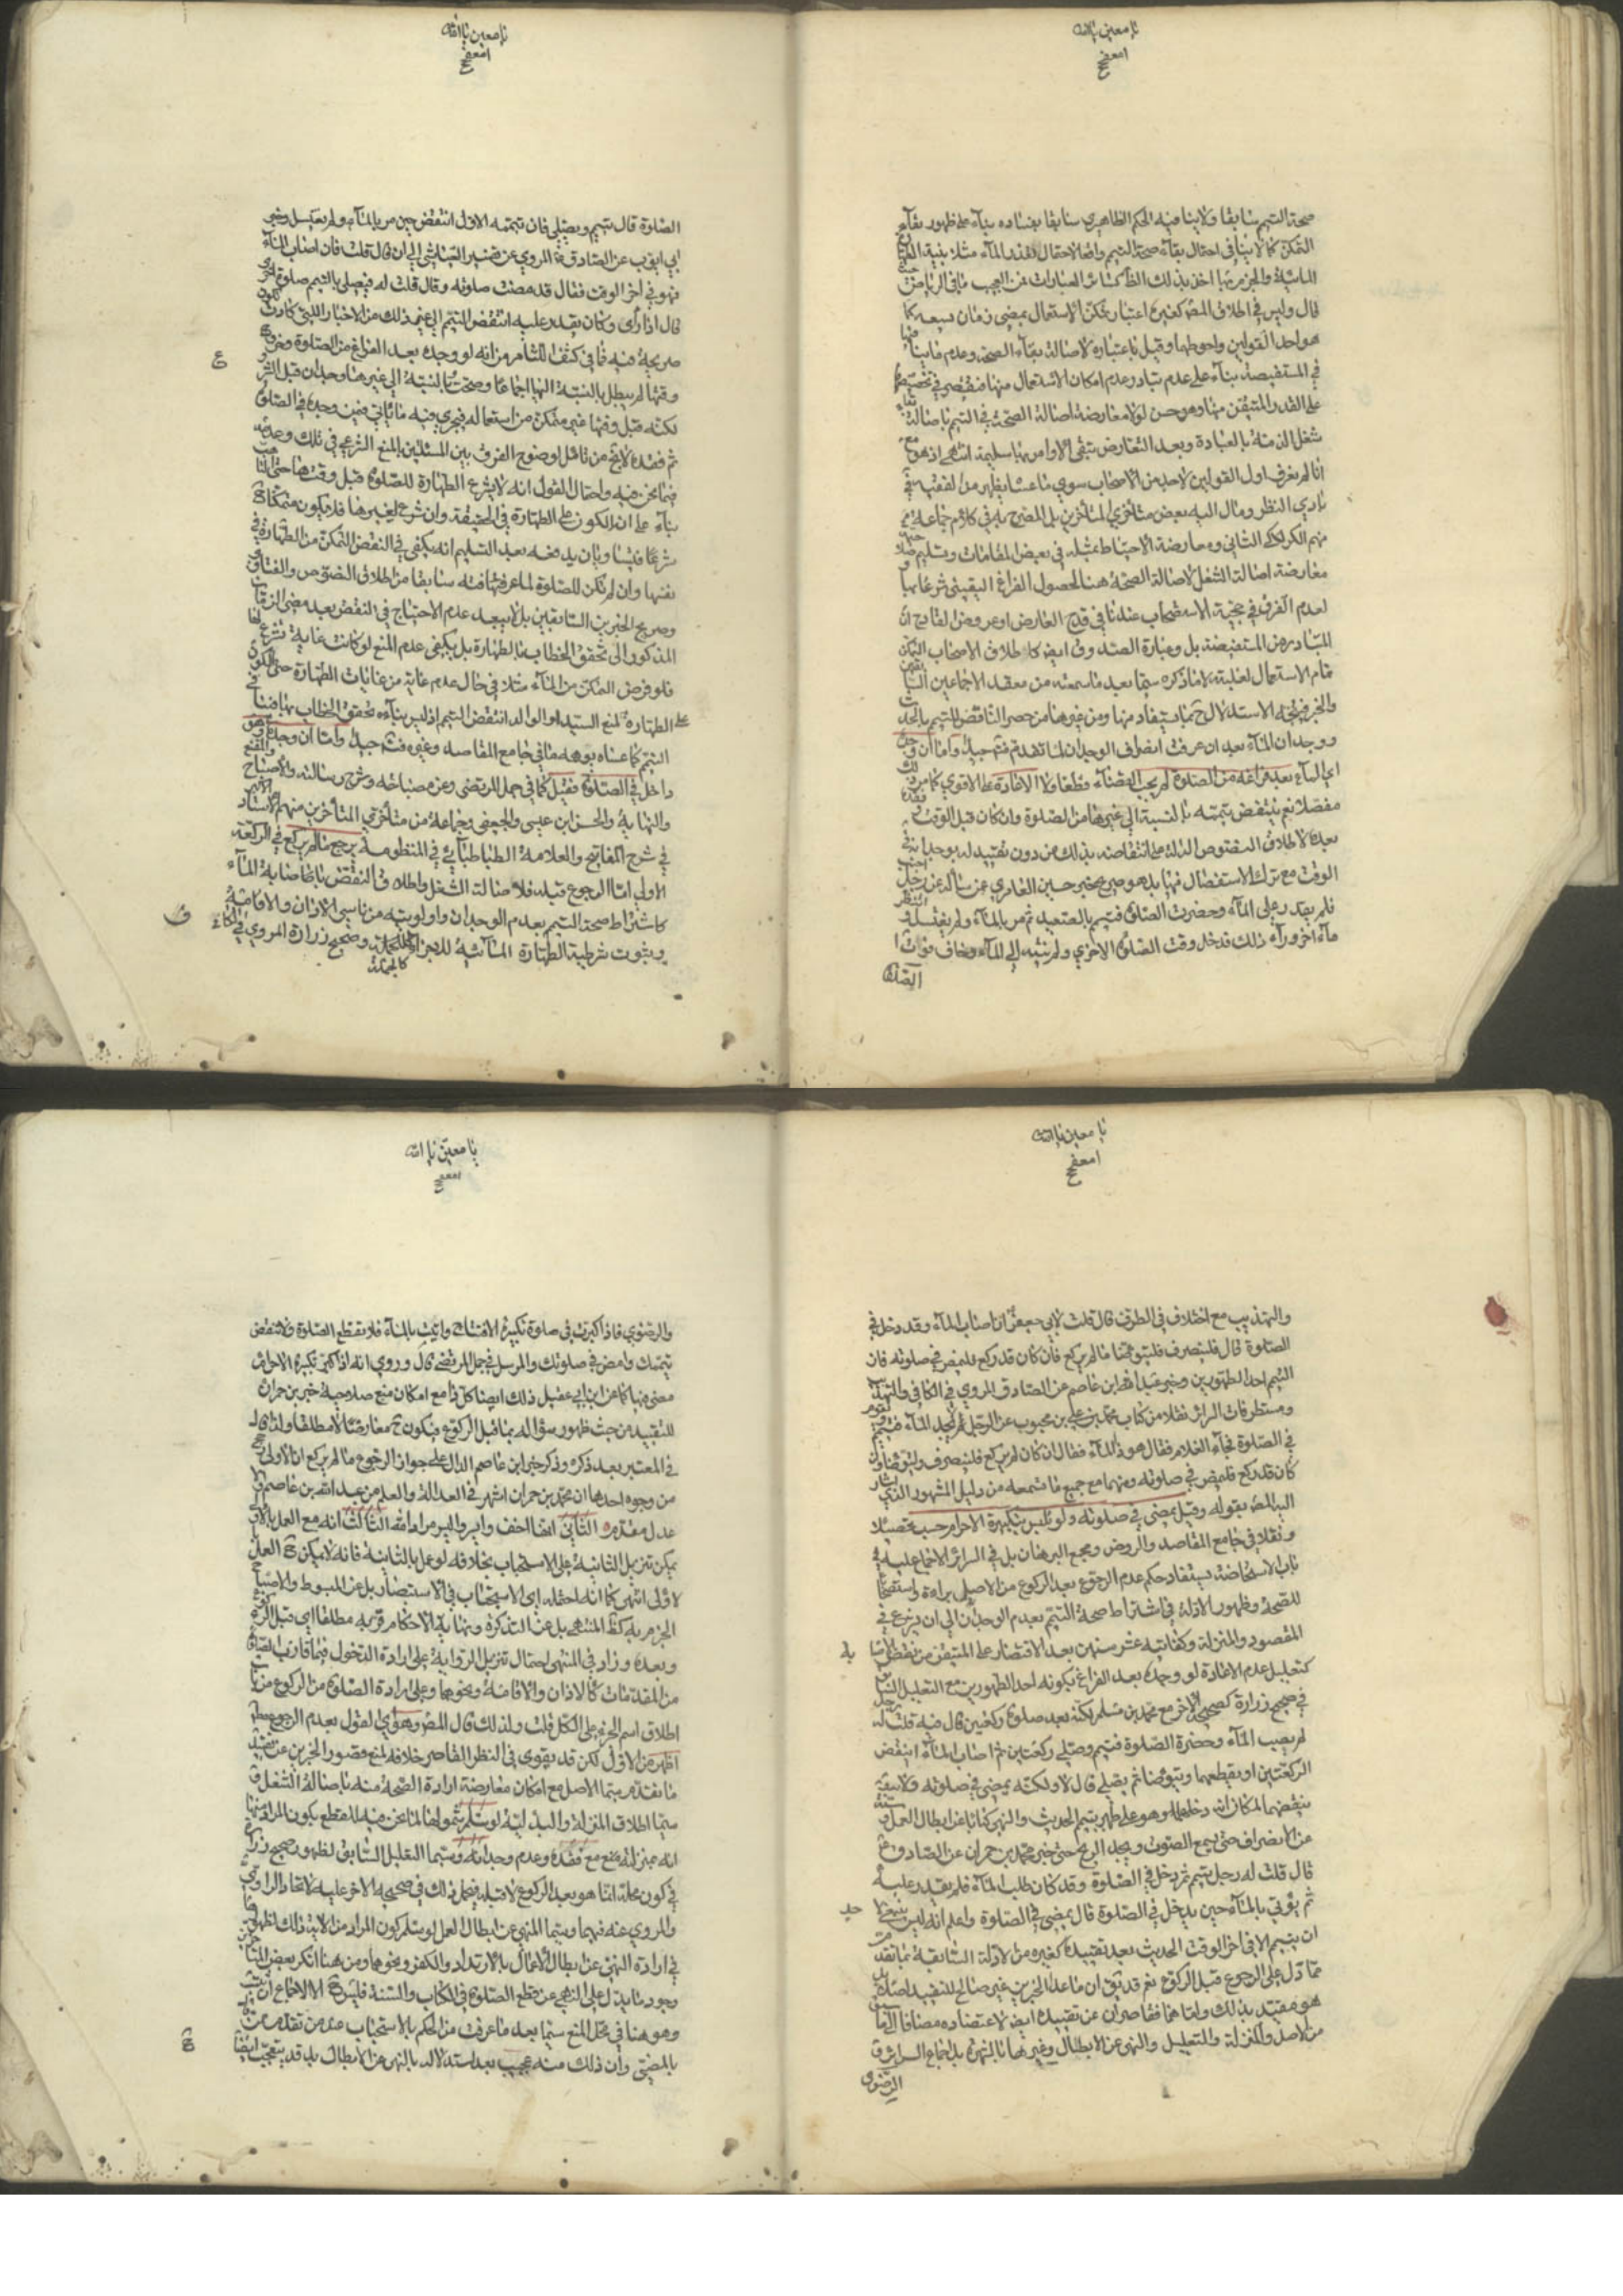 يا معين يا الله
صحة التيمم سابقا ولا ينافيه الحكم الظاهري سابقا بفساده بناء على ظهور بقاء
التمكن كما لا ينافي احتمال بقاء صحة التيمم واقعا لاحتمال فقد الماء مثلا بنية
قال وليس في اطلاق المص كغيره اعتبار تمكن الاستعمال بمضي زمان يسعه كما
هو احد القولين واحوطهما وقيل باعتباره لاصالة بقاء الصحة وعدم
في المستفيضة بناء على عدم تبادر عدم امكان الاستعمال منها فيقتصر في تخصيصها
على القدر المتيقن منها وهو حسن لولا معارضة اصالة الصحة في التيمم باصالة
شغل الذمة بالعبادة وبعد التعارض تبقى الاوامر بها سليمة انتهى اذ هو مع
انا لم نعرف اول القولين لاحد من الاصحاب سوى ما عساه يظهر من
بادي النظر ومال اليه بعض متأخري المتأخرين بل المصرح به في كلام جماعة
منهم الكركي الثاني ومعارضة الاحتياط بمثله في بعض المقامات وتسليم
معارضة اصالة الشغل لاصالة الصحة هنا لحصول الفراغ اليقيني شرعا بها
لعدم الفرق في حجية الاستصحاب عندنا في قدح العارض او عروض القادح ان
المتبادر من المستفيضة بل وعبارة الصدوق ايض كاطلاق الاصحاب التمكن
تمام الاستعمال لغلبته لا ما ذكره سيما بعد ما سمعته من معقد الاجماعين
ووجدان الماء بعد ان عرفت انصراف الوجدان لما تقدم فتم جيدا واما ان وجد
اي الماء بعد فراغه من الصلوة لم يجب القضاء قطعا ولا الاعادة على الاقوى كما مر
مفصلا نعم ينتقض تيممه بالنسبة الى غيرها من الصلوة وان كان قبل الوقت
بعده لاطلاق النصوص الدالة على انتقاضه بذلك من دون تقييد له بوجدانه في
الوقت مع ترك الاستفصال فيها بل هو صريح خبر حسين العامري عمن سأله عن رجل
فلم يقدر على الماء وحضرت الصلوة فتيمم بالصعيد ثم مر بالماء ولم يغتسل و
ماء اخر وراء ذلك فدخل وقت الصلوة الاخرى ولم ينته الى الماء وخاف فوات
الصلوة
يا معين يا الله
الصلوة قال تيمم ويصلي فان تيممه الاول انتقض حين مر بالماء ولم يغتسل وخبر
ابي ايوب عن الصادق ع المروي عن تفسير العياشي الى ان قال قلت فان اصاب الماء
وهو في اخر الوقت فقال قد مضت صلوته وقال قلت له فيصلي بالتيمم صلوة اخرى
قال اذا رأى وكان يقدر عليه انتقض التيمم الى غير ذلك من الاخبار التي كادت تكون
صريحة فيه فما في كشف اللثام من انه لو وجده بعد الفراغ من الصلوة وخروج
وقتها لم يبطل بالنسبة اليها اجماعا وصحت بالنسبة الى غيرها وجدان قبل
لكنه قبل وقتها غير متمكن من استعماله فيجري فيه ما يأتي فيمن وجده في الصلوة
ثم فقده لا يخ من تأمل لوضوح الفرق بين المسئلتين بالمنع الشرعي في تلك وعدمه
فيما نحن فيه واحتمال القول انه لا يشرع الطهارة للصلوة قبل وقتها حتى
بناء على ان الكون على الطهارة في الحقيقة وان شرع لغيرها فلا يكون متمكنا
شرعا فيها وبان يدفعه بعد التسليم انه يكفي في النقض التمكن من الطهارة في
نفسها وان لم تكن للصلوة لما عرفتها فته سابقا من اطلاق النصوص والفتاوى
وصريح الخبرين السابقين بل لا يبعد عدم الاحتياج في النقض بعد مضي الزمان
المذكور الى تحقق الخطاب بالطهارة بل يكفي عدم المنع لو كانت غاية تشرع لها
فلو فرض التمكن من الماء مثلا في حال عدم غاية من غايات الطهارة حتى الكون
على الطهارة لمنع السيد او الوالد انتقض التيمم اذ ليس بناؤه تحقق الخطاب بها فما
التيمم كما عساه يوهمه ما في جامع المقاصد وغيره فتم جيدا واما ان وجده وهو
داخل في الصلوة فقيل كما في جمل المرتضى وعن مصباحه وشرح رسالته والاصباح
والنهاية والحسن ابن عيسى والجعفي وجماعة من متأخري المتأخرين منهم الاستاد
في شرح المفاتيح والعلامة الطباطبائي في المنظومة يرجع ما لم يركع في الركعة
الاولى اما الرجوع قبله فلاصالة الشغل واطلاق النقض باصابة الماء
كاشتراط صحة التيمم بعدم الوجدان واولويته من ناسي الاذان والاقامة
وثبوت شرطية الطهارة المائية للاجزاء كالجملة وصحيح زرارة المروي في الكافي
يا معين يا الله
والتهذيب مع اختلاف في الطرق قال قلت لابي جعفر ع ان اصاب الماء وقد دخل في
الصلوة قال فلينصرف فليتوضأ ما لم يركع فان كان قد ركع فليمض في صلوته فان
التيمم احد الطهورين وخبر عبد الله ابن عاصم عن الصادق المروي في الكافي والتهذيب
ومستطرفات السرائر نقلا من كتاب محمد بن علي بن محبوب عن الرجل لم يجد الماء فتيمم ويقوم
في الصلوة فجاء الغلام فقال هو ذا الماء فقال ان كان لم يركع فلينصرف وليتوضأ وان
كان قد ركع فليمض في صلوته ومنهما مع جميع ما تسمعه من دليل المشهور الذي اشار
اليه المص بقوله وقيل يمضي في صلوته ولو تلبس بتكبيرة الاحرام حسب تحصيلا
ونقلا في جامع المقاصد والروض ومجمع البرهان بل في السرائر الاجماع عليه في
باب الاستحاضة يستفاد حكم عدم الرجوع بعد الركوع من الاصل براءة واستصحابا
للصحة وظهور الادلة في اشتراط صحة التيمم بعدم الوجدان الى ان يشرع في
المقصود والمنزلة وكفايته عشر سنين بعد الاقتصار على المتيقن من نقض
كتعليل عدم الاعادة لو وجده بعد الفراغ بكونه احد الطهورين مع التعليل
في صحيح زرارة كصحيحه الاخر مع محمد بن مسلم لكنه بعد صلوة ركعتين قال فيه قلت له رجل
لم يصب الماء وحضرة الصلوة فتيمم وصلى ركعتين ثم اصاب الماء اينقض
الركعتين او يقطعهما ويتوضأ ثم يصلي قال لا ولكنه يمضي في صلوته ولا
ينقضهما لمكان انه دخلها وهو على طهر بتيمم الحديث والنهي كتابا عن ابطال العمل وسنة
عن الانصراف حتى يسمع الصوت ويجد الريح حتى خبر محمد بن حمران عن الصادق ع
قال قلت له رجل تيمم ثم دخل في الصلوة وقد كان طلب الماء فلم يقدر عليه
ثم يؤتى بالماء حين يدخل في الصلوة قال يمضي في الصلوة واعلم انه ليس ينبغي لاحد
ان يتيمم الا في اخر الوقت الحديث بعد تقييده كغيره من الادلة السابقة بما تقدم
مما دل على الرجوع قبل الركوع نعم قد يق ان ما عدا الخبرين غير صالح للتقييد اصلا بل
هو مقيد بذلك واما هما فقاصران عن تقييده ايض لاعتضاده مضافا الى ما سبق
من الاصل والمنزلة والتعليل والنهي عن الابطال وغيرها بالشهرة بل اجماع السرائر و
الرضوي
يا معين يا الله
والرضوي فاذا كبرت في صلوة تكبيرة الافتتاح واتيت بالماء فلا تقطع الصلوة ولا تنقض
تيممك وامض في صلوتك والمرسل في جمل المرتضى قال وروي انه اذا كبر تكبيرة الاحرام
مضى فيها كما عن ابن ابي عقيل ذلك ايضا كل ذا مع امكان منع صلاحية خبر بن حمران
للتقييد من حيث ظهور سؤاله بما قبل الركوع فيكون ح معارضا لا مطلقا ولذا قال
في المعتبر بعد ذكره وذكر خبر ابن عاصم الدال على جواز الرجوع ما لم يركع ان الاولى ارجح
من وجوه احدها ان محمد بن حمران اشهر في العدالة والعلم من عبد الله بن عاصم و
عدل مقدم الثاني انها اخف وايسر واليسر مراد الله الثالث انه مع العمل بالاولى
يمكن تنزيل الثانية على الاستحباب بخلافه لو عمل بالثانية فانه لا يمكن ح العمل
لاولى انتهى كما انه احتمله اي الاستحباب في الاستبصار بل عن المبسوط والاصباح
الجزم به كظ المنتهى بل عن التذكرة ونهاية الاحكام قربه مطلقا اي قبل الركوع
وبعده وزاد في المنتهى احتمال تنزيل الرواية على ارادة الدخول فيما قارب الصلوة
من المقدمات كالاذان والاقامة ونحوهما وعلى ارادة الصلوة من الركوع من باب
اطلاق اسم الجزء على الكل قلت ولذلك قال المص وهو اي القول بعدم الرجوع مطلقا
اظهر من الاول لكن قد يقوى في النظر القاصر خلافه لمنع قصور الخبرين عن تقييد
ما تقدم سيما الاصل مع امكان معارضة ارادة الصحة منه باصالة الشغل و
سيما اطلاق المنزلة والبدلية لو سلم شمولها لما نحن فيه للقطع بكون المراد منها
انه بمنزلة مع فقده وعدم وجدانه وسيما التعليل السابق لظهور صحيح زرارة
في كون محله انما هو بعد الركوع لا قبله فيحمل ذلك في صحيحه الاخر عليه لاتحاد الراوي
والمروي عنه فيهما وسيما النهي عن ابطال العمل لو سلم كون المراد من الاية ذلك لظهورها
في ارادة النهي عن ابطال الاعمال بالارتداد والكفر ونحوهما ومن هنا انكر بعض المتأخرين
وجود ما يدل على النهي عن قطع الصلوة في الكتاب والسنة فليس ح الا الاجماع ان ثبت
وهو هنا في محل المنع سيما بعد ما عرفت من الحكم بالاستحباب ممن تقدم
بالمضي وان ذلك منه عجيب بعد استدلاله بالنهي عن الابطال بل قد يتعجب ايضا